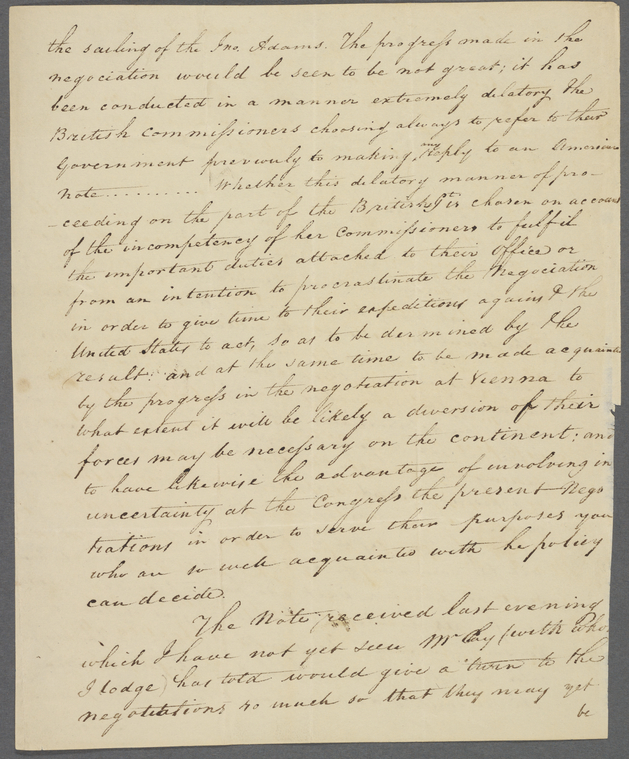 the sailing of the Jno. Adams. The progress made in the
negociation would be seen to be not great; it has
been conducted in a manner extremely dilatory the
British Commissioners choosing always to refer to their
Government previously to making any Reply to an American
note.......... Whether this dilatory manner of pro-
-ceeding on the part of the British Gt is chosen on account
of the incompetency of her Commissioners to fulfil
the important duties attached to their Office or
from an intention to procrastinate the Negociation
in order to give time to their expeditions against the
United States to act, so as to be dermined by the
result: and at the same time to be made acquainted
by the progress in the negotiation at Vienna to
what extent it will be likely a diversion of their
forces may be necessary on the continent; and
to have likewise the advantage of involving in
uncertainty at the Congress the present Nego
tiations in order to serve their purposes you
who are so well acquainted with he policy
can decide.
The Note received last evening
which I have not yet seen Mr Clay (with who
I lodge) has told would give a turn to the
negotiations so much so that they may yet
be